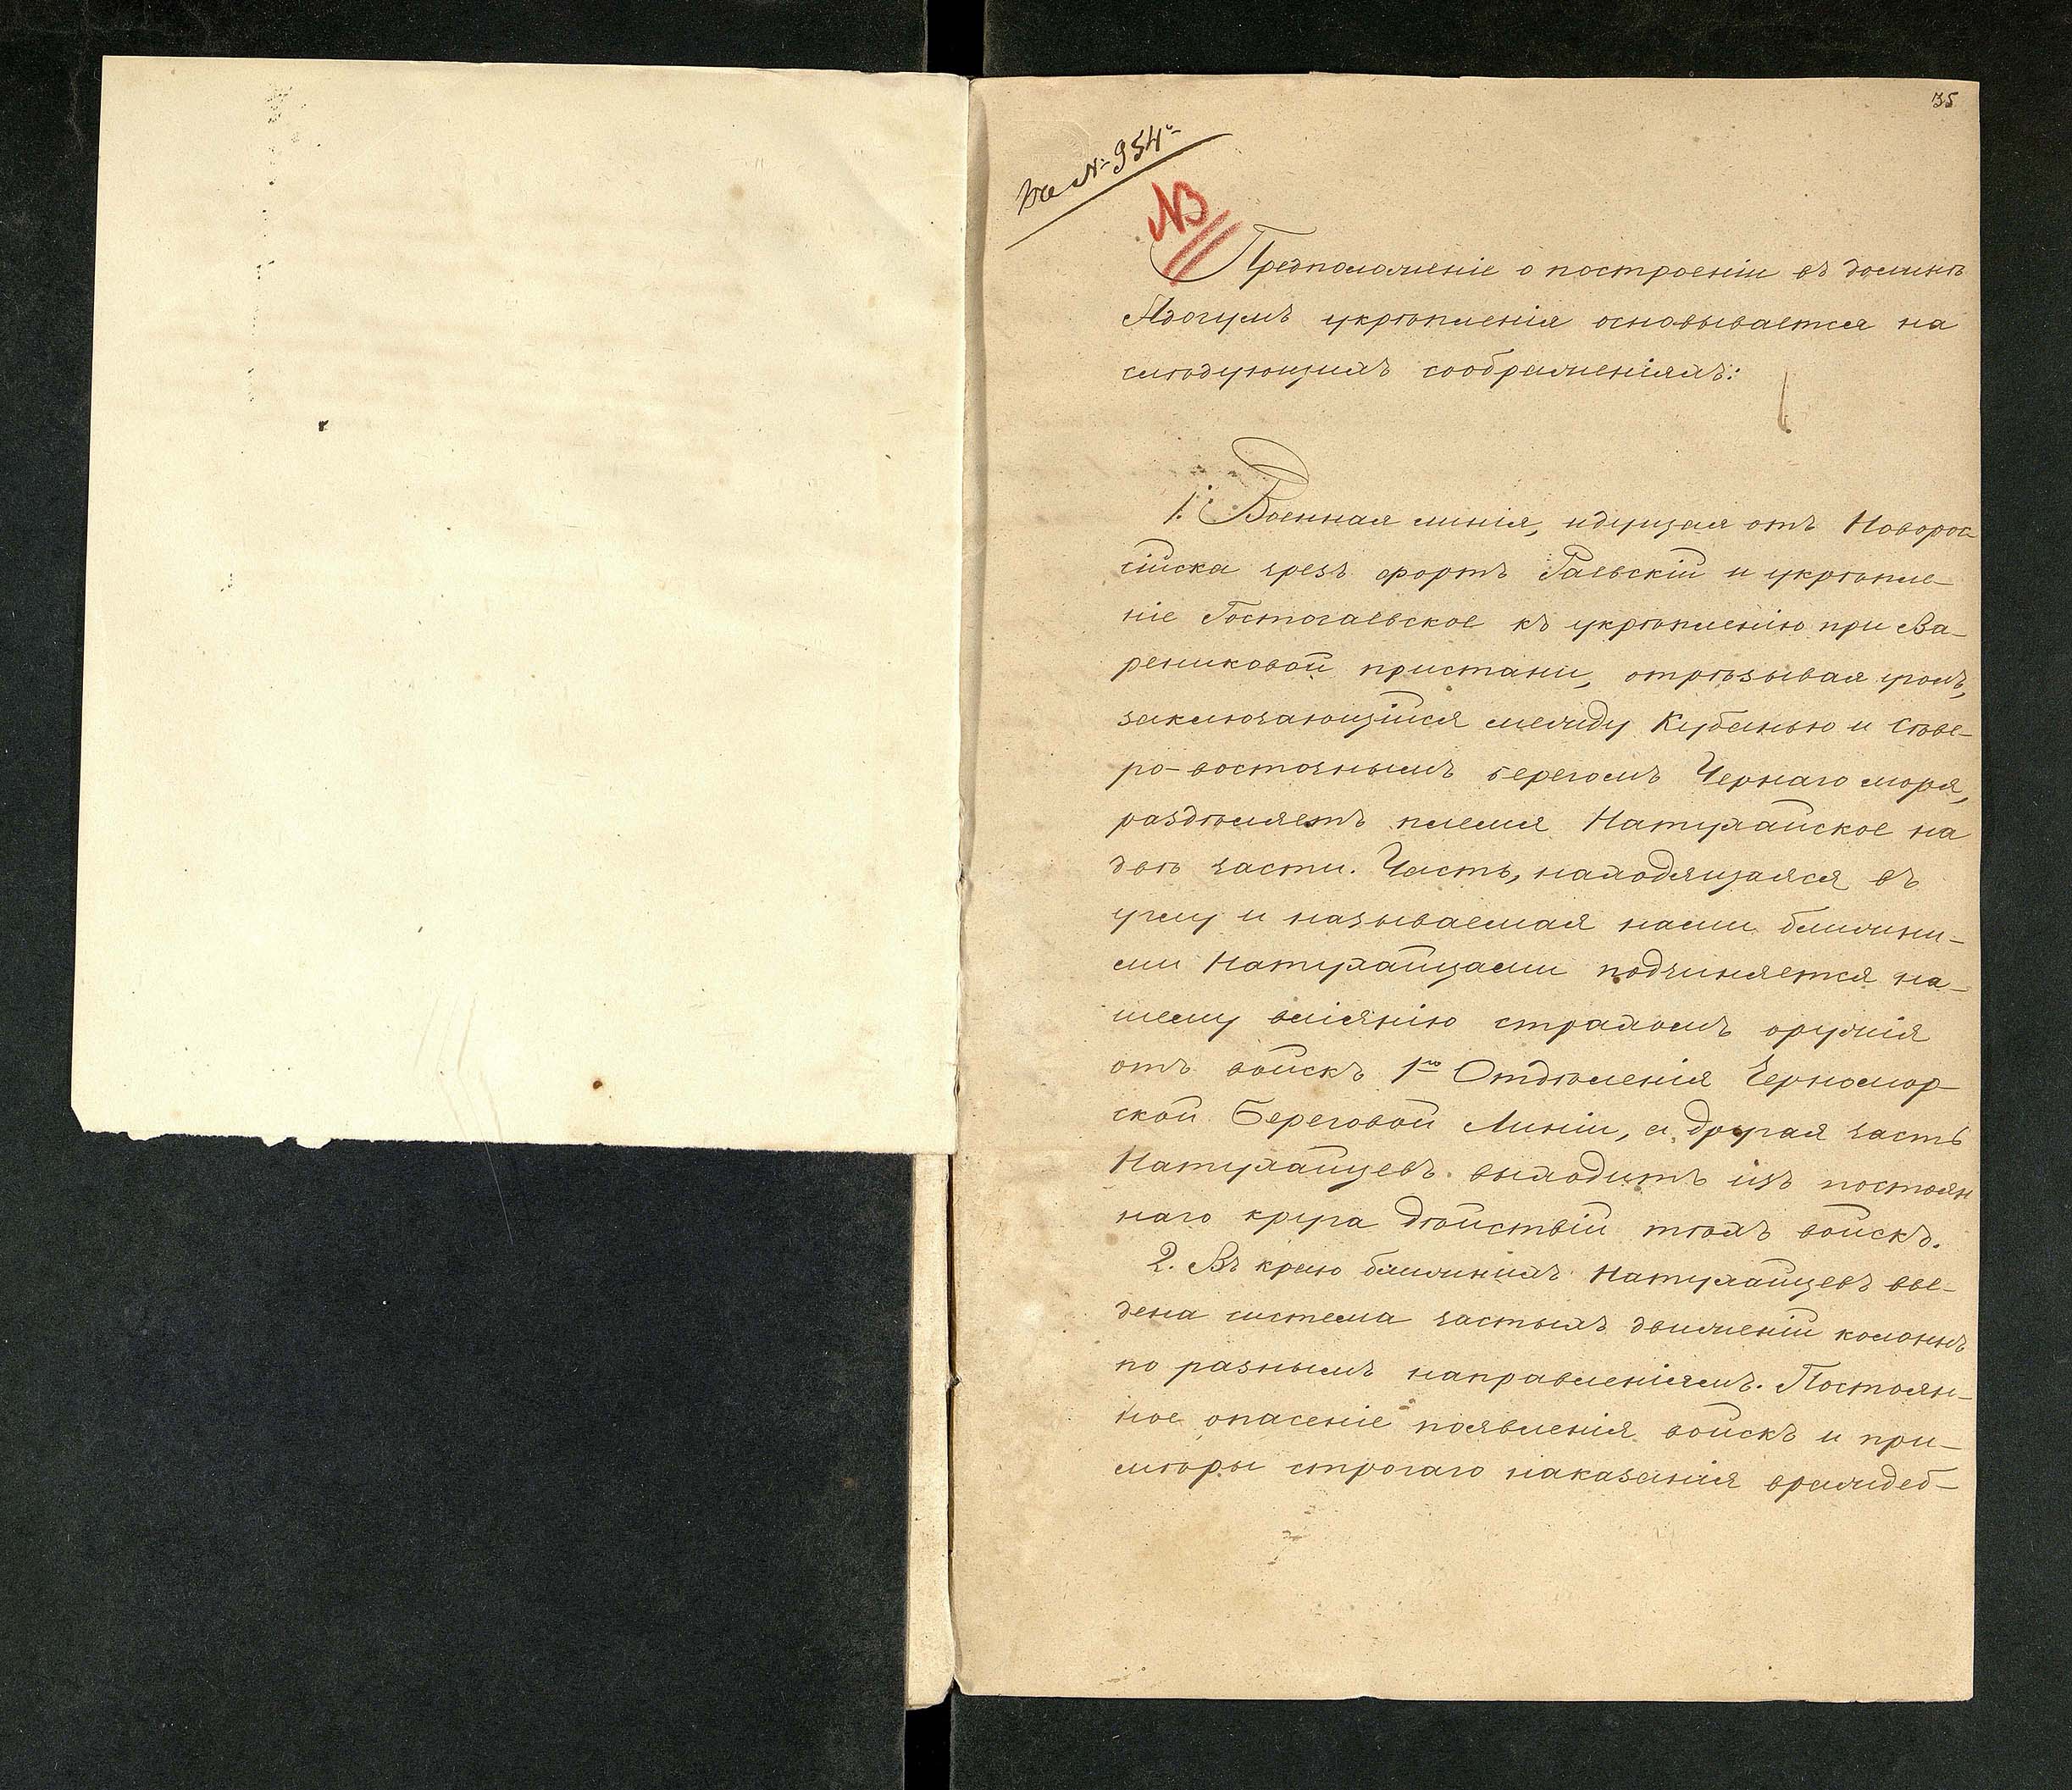 35
Къ № 954
NB
Предположеніе о построеніи въ долинѣ
Адагумъ укрѣпленія основывается на
слѣдующихъ соображеніяхъ:
1. Военная линія, идущая отъ Новорос-
сійска чрезъ фортъ Раевскій и укрѣпле-
ніе Гостогаевское къ укрѣпленію при Ва-
рениковой пристани, отрѣзывая уголъ,
заключающійся между Кубанью и Сѣве-
ро-восточнымъ берегомъ Чернаго моря,
раздѣляетъ племя Натухайское на
двѣ части. Часть, находящаяся въ
углу и называемая нами ближни-
ми Натухайцами подчиняется на-
шему вліянію страхомъ оружія
отъ войскъ 1го Отдѣленія Черномор-
ской Береговой Линіи, а другая часть
Натухайцевъ выходитъ изъ постоян
наго круга дѣйствій тѣхъ войскъ.
2. Въ краю ближнихъ Натухайцевъ вве-
дена система частыхъ движеній колоннъ
по разнымъ направленіямъ. Постоян-
ное опасеніе появленія войскъ и при-
мѣры строгаго наказанія враждеб-